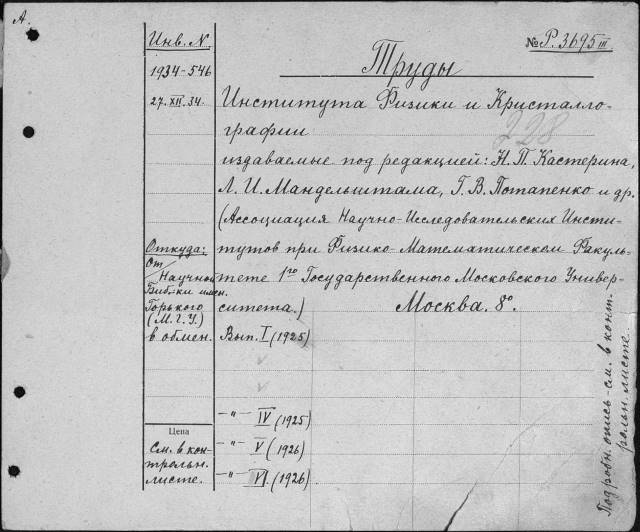 А.
Инв. N
№ Р. 3695 III
1934-546
Труды
27. XII. 34.
Института Физики и Кристалло-
графии
228
издаваемые под редакцией: Н. П. Кастерина,
Л. И. Мандельштама, Г. В. Потапенко и др.
(Ассоциация Научно-Исследовательских Инсти-
тутов при Физико-Математическом Факуль-
тете 1го Государственного Московского Универ-
ситета.) Москва. 8°.
Откуда:
От
Научной
Биб-ки имен.
Горького
(М. Г. У.)
в обмен.
Вып. I (1925)
-"- IV (1925)
-"- V (1926)
-"- VI (1926)
Цена
См. в кон-
трольн.
листе.
Подробн. опись - см. в конт-
рольн. листе.